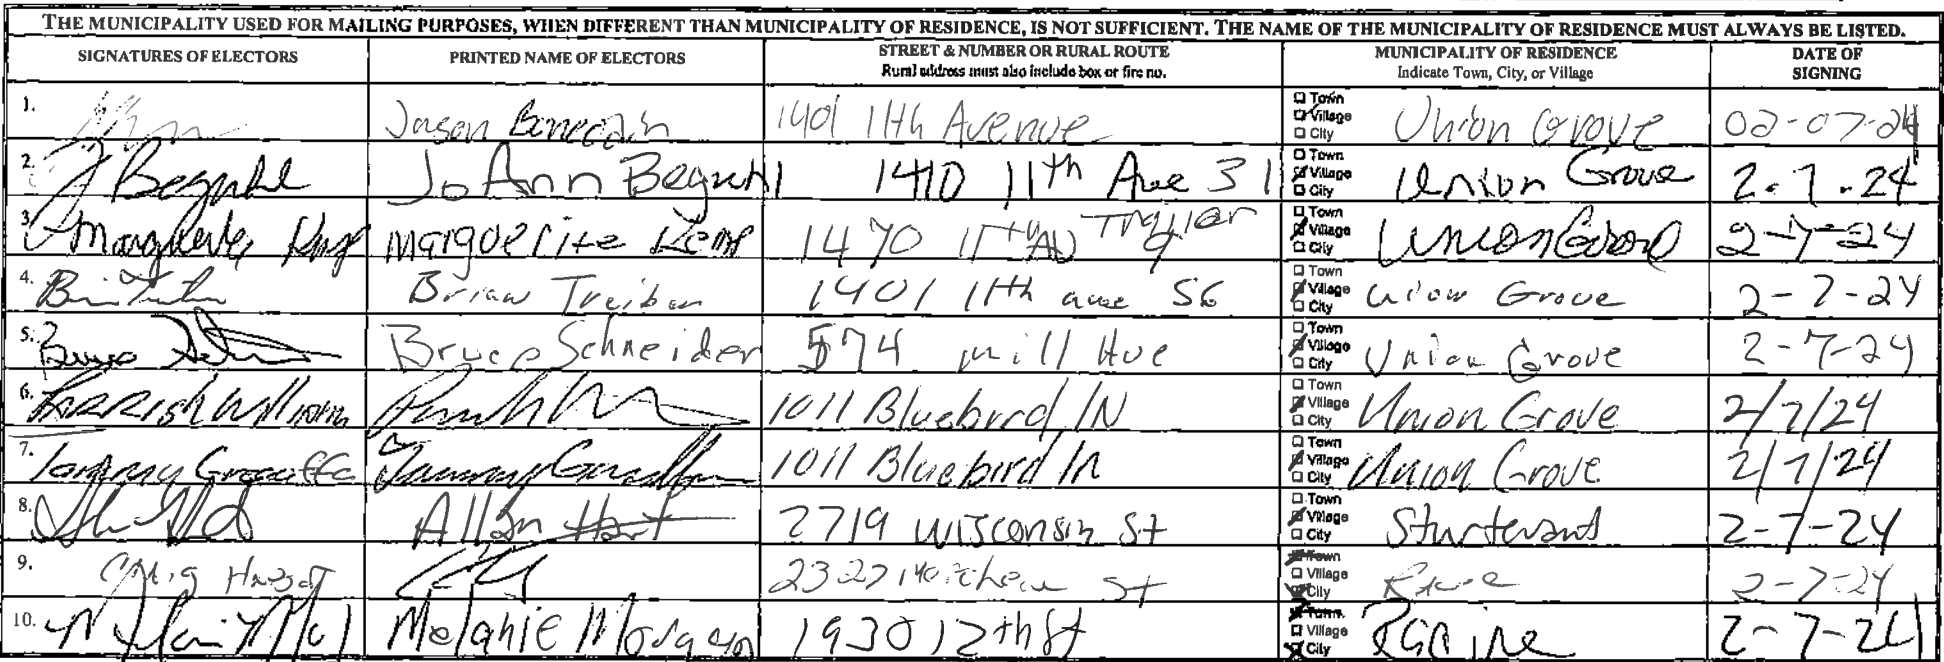 THE MUNICIPALITY USED FOR MAILING PURPOSES, WHEN DIFFERENT THAN MUNICIPALITY OF RESIDENCE, IS NOT SUFFICIENT. THE NAME OF THE MUNICIPALITY OF RESIDENCE MUST ALWAYS BE LISTED.
SIGNATURES OF ELECTORS PRINTED NAME OF ELECTORS STREET & NUMBER OR RURAL ROUTE MUNICIPALITY OF RESIDENCE DATE OF SIGNING
Rural address must also include box or fire no. Indicate Town, City, or Village
1. Jason 1401 11th Avenue Town Village City Union Grove 02-07-24
2. JoAnn 1410 11th Ave 31 Town Village City Union Grove 2.7.24
3. Marguerite Kemp 1470 11th Av Trailer 9 Town Village City Union Grove 2-7-24
4. Brian Treiban 1401 11th ave S6 Town Village City Union Grove 2-7-24
5. Bruce Bruce Schneider 574 Mill Ave Town Village City Union Grove 2-7-24
6. Parrish William 1011 Bluebird ln Town Village City Union Grove 2/7/24
7. Tammy 1011 Bluebird ln Town Village City Union Grove 2/7/24
8. Allan Hart 2719 Wisconsin St Town Village City Sturtevant 2-7-24
9. Craig St Town Village City 2-7-24
10. Melanie Morgan 1930 12th St Town Village City Racine 2-7-24